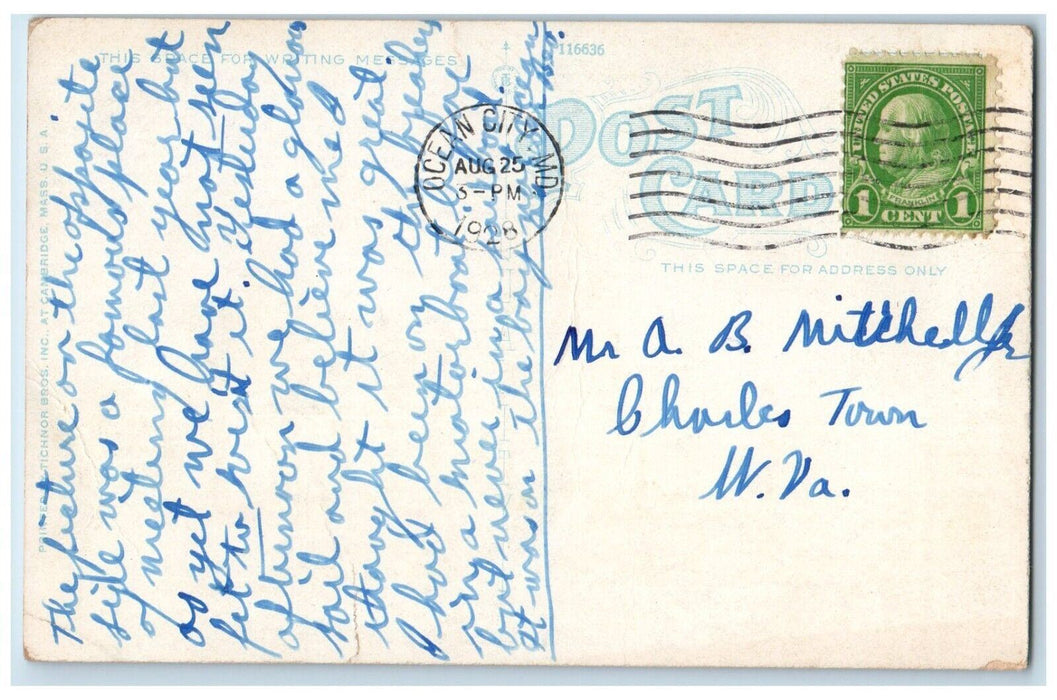 THIS SPACE FOR WRITING MESSAGES
116636
POST
CARD
THIS SPACE FOR ADDRESS ONLY
PRINTED TICHNOR BROS. INC. AT CAMBRIDGE, MASS. U. S. A.
OCEAN CITY, MD
AUG 25
PM
1928
UNITED STATES POSTAGE
FRANKLIN
1 CENT 1
The picture on the opposite
side was a famous place
of meeting last year but
as yet we have not seen
fit to visit it. Yesterday
afternoon we had a glorious
sail and believe me I
thought it was great
I had been on the speeder
in a motor boat before
but never in a sail boat.
It was on the bay
Mr A. B. Mitchell Jr
Charles Town
W. Va.